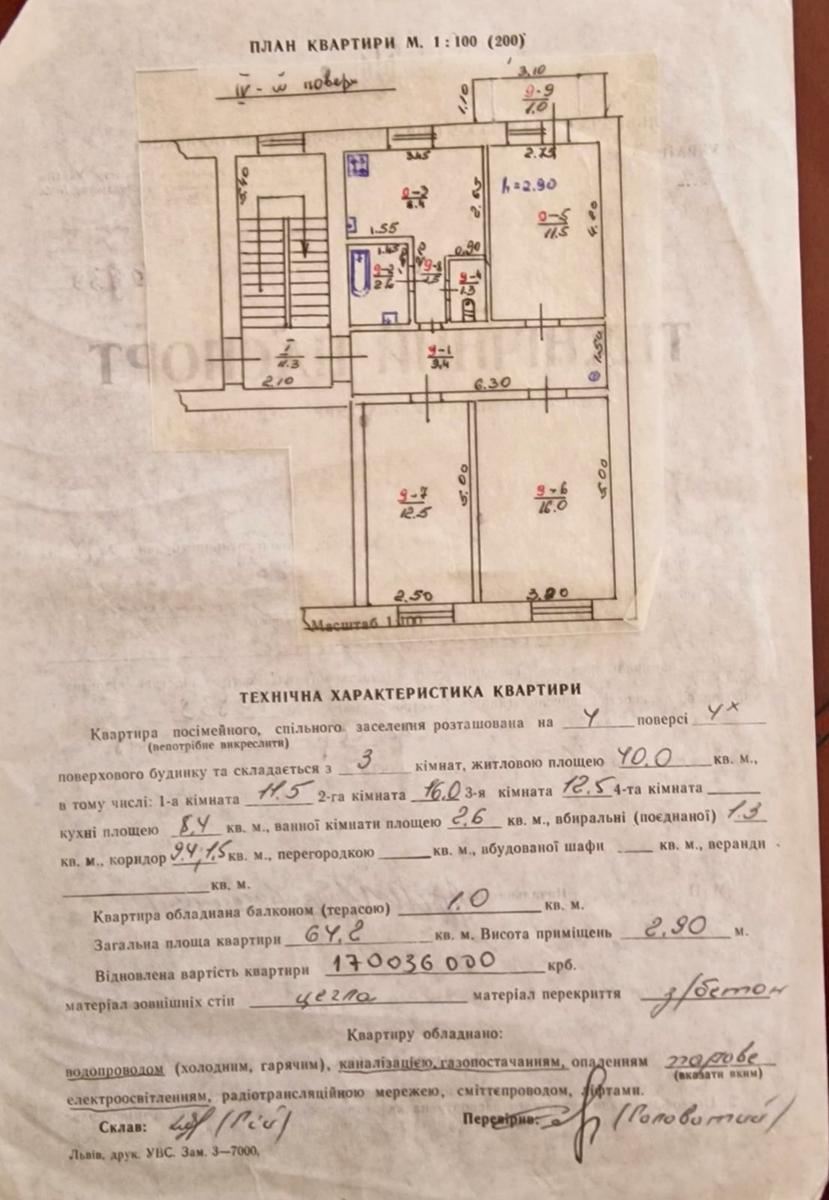 ПЛАН КВАРТИРИ М. 1:100 (200)
IV-й поверх
3.10
1.10
9-9
1.0
5.40
3.45
2.75
9-2
8.4
2.65
h=2.90
9-5
11.5
4.20
1.55
1.65
0.90
9-3
2.6
9-8
1.5
9-4
1.3
I
2.10
9-1
9.4
1.50
6.30
9-7
12.5
5.00
9-6
16.0
5.00
2.50
3.20
Масштаб 1:100
ТЕХНІЧНА ХАРАКТЕРИСТИКА КВАРТИРИ
Квартира посімейного, спільного заселення розташована на 4 поверсі 4х
(непотрібне викреслити)
поверхового будинку та складається з 3 кімнат, житловою площею 40,0 кв. м.,
в тому числі: 1-а кімната 11.5 2-га кімната 16.0 3-я кімната 12.5 4-та кімната
кухні площею 8,4 кв. м., ванної кімнати площею 2,6 кв. м., вбиральні (поєднаної) 1.3
кв. м., коридор 9.4, 1,5 кв. м., перегородкою кв. м., вбудованої шафи кв. м., веранди
кв. м.
Квартира обладнана балконом (терасою) 1.0 кв. м.
Загальна площа квартири 64,2 кв. м. Висота приміщень 2.90 м.
Відновлена вартість квартири 170036000 крб.
матеріал зовнішніх стін цегла матеріал перекриття з/бетон
Квартиру обладнано:
водопроводом (холодним, гарячим), каналізацією, газопостачанням, опаленням парове
(вказати яким)
електроосвітленням, радіотрансляційною мережею, сміттєпроводом, ліфтами.
Склав: Перевірив: (Головатий)
Львів, друк. УВС. Зам. 3—7000.